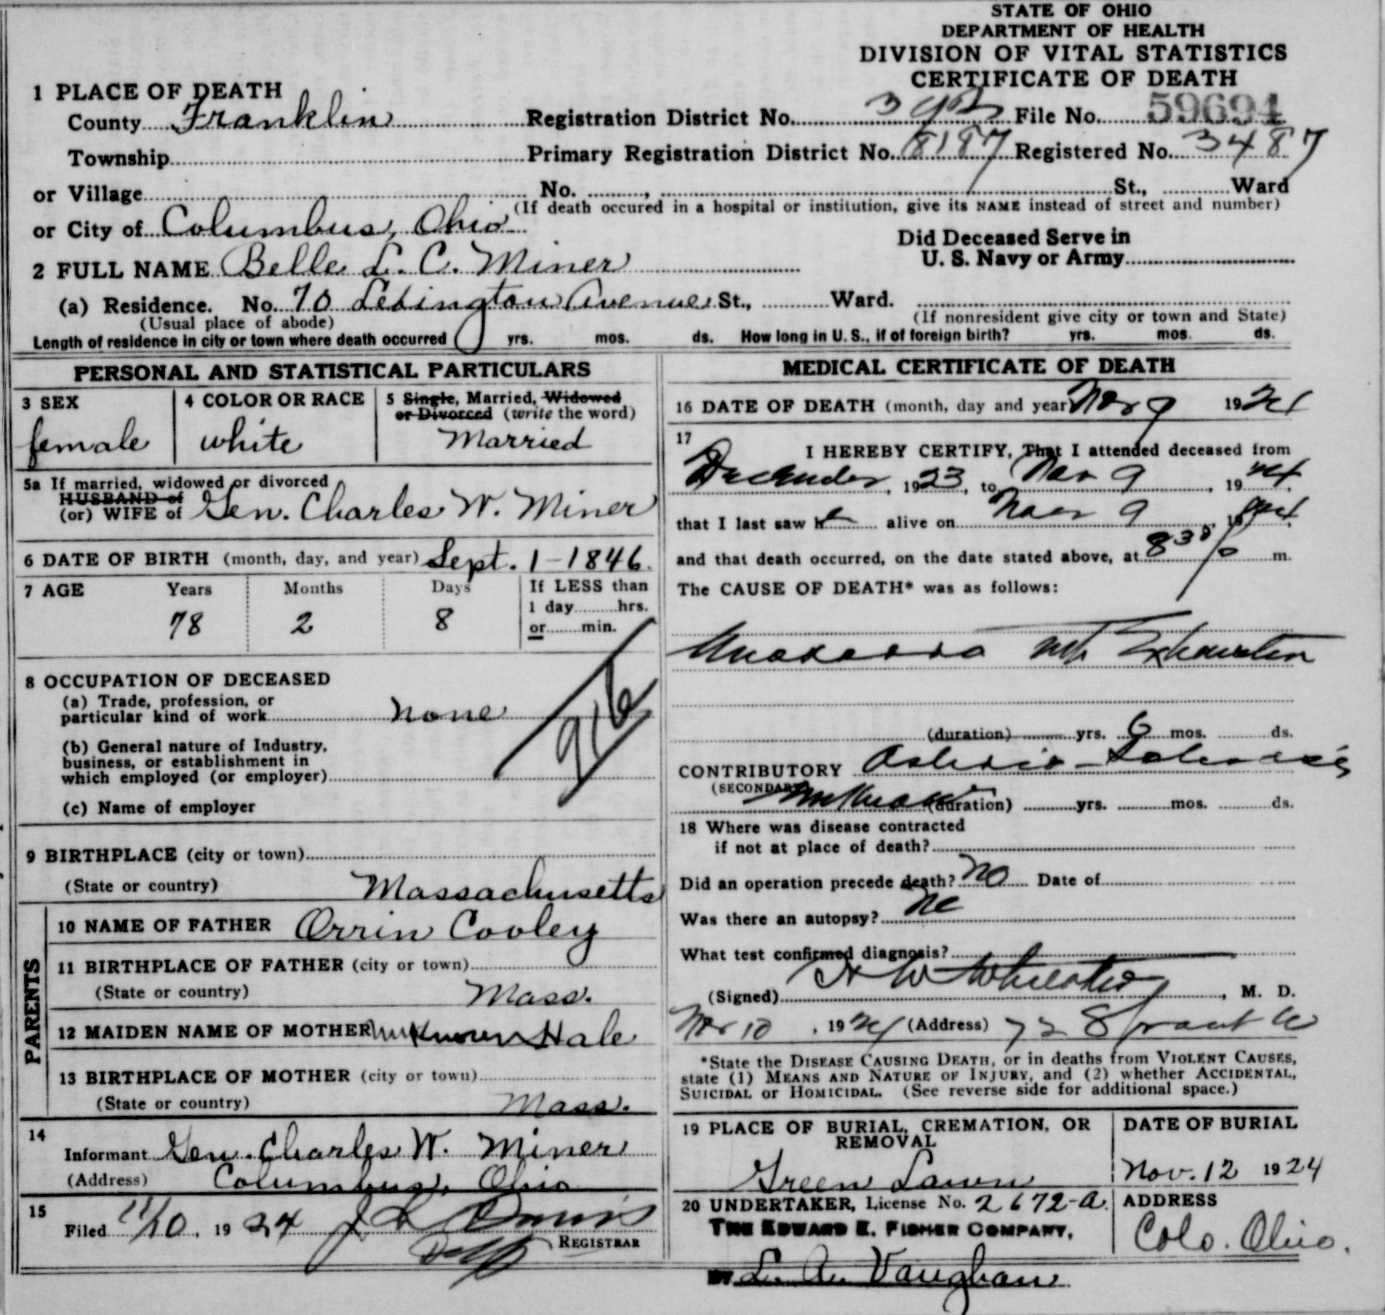 STATE OF OHIO
DEPARTMENT OF HEALTH
DIVISION OF VITAL STATISTICS
CERTIFICATE OF DEATH
1 PLACE OF DEATH
County Franklin Registration District No. 392 File No. 59694
Township Primary Registration District No. 8187 Registered No. 3487
or Village No. , St., Ward
(If death occured in a hospital or institution, give its NAME instead of street and number)
or City of Columbus, Ohio
Did Deceased Serve in
U. S. Navy or Army
2 FULL NAME Belle L. C. Miner
(a) Residence. No. 70 Lexington Avenue St., Ward.
(Usual place of abode) (If nonresident give city or town and State)
Length of residence in city or town where death occurred yrs. mos. ds. How long in U. S., if of foreign birth? yrs. mos. ds.
PERSONAL AND STATISTICAL PARTICULARS
3 SEX
female
4 COLOR OR RACE
white
5 Single, Married, Widowed
or Divorced (write the word)
Married
5a If married, widowed or divorced
HUSBAND of
(or) WIFE of Gen. Charles W. Miner
6 DATE OF BIRTH (month, day, and year) Sept. 1-1846.
7 AGE Years Months Days If LESS than
1 day hrs.
or min.
78 2 8
8 OCCUPATION OF DECEASED
(a) Trade, profession, or
particular kind of work none
(b) General nature of Industry,
business, or establishment in
which employed (or employer)
(c) Name of employer
9 BIRTHPLACE (city or town)
(State or country) Massachusetts
PARENTS
10 NAME OF FATHER Orrin Cooley
11 BIRTHPLACE OF FATHER (city or town)
(State or country) Mass.
12 MAIDEN NAME OF MOTHER Unknown Hale
13 BIRTHPLACE OF MOTHER (city or town)
(State or country) Mass.
14
Informant Gen. Charles W. Miner
(Address) Columbus, Ohio
15
Filed 11/10, 1924
REGISTRAR
MEDICAL CERTIFICATE OF DEATH
16 DATE OF DEATH (month, day and year) Nov 9 1924
17
I HEREBY CERTIFY, That I attended deceased from
December, 1923, to Nov 9, 1924,
that I last saw h alive on Nov 9, 1924
and that death occurred, on the date stated above, at 8 30 p m.
The CAUSE OF DEATH* was as follows:
Exhaustion
(duration) yrs. 6 mos. ds.
CONTRIBUTORY
(SECONDARY)
Unknown (duration) yrs. mos. ds.
18 Where was disease contracted
if not at place of death?
Did an operation precede death? No Date of
Was there an autopsy? No
What test confirmed diagnosis?
(Signed) , M. D.
Nov 10, 1924 (Address)
*State the DISEASE CAUSING DEATH, or in deaths from VIOLENT CAUSES,
state (1) MEANS AND NATURE OF INJURY, and (2) whether ACCIDENTAL,
SUICIDAL or HOMICIDAL. (See reverse side for additional space.)
19 PLACE OF BURIAL, CREMATION, OR
REMOVAL
Green Lawn
DATE OF BURIAL
Nov. 12 1924
20 UNDERTAKER, License No. 2672-a.
THE EDWARD E. FISHER COMPANY,
BY L. A. Vaughan
ADDRESS
Colo. Ohio.